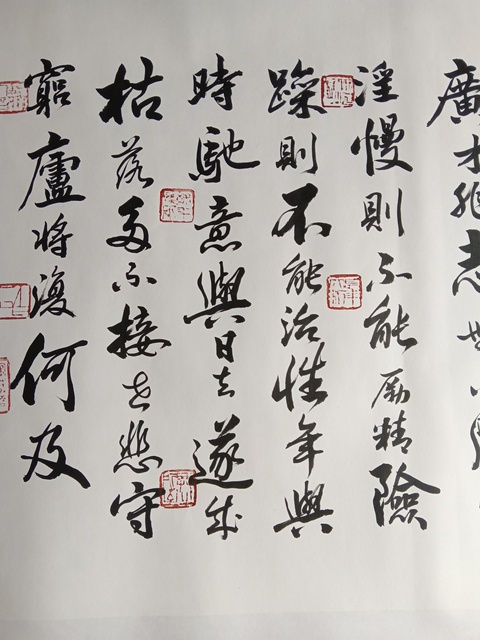 廣才非志無以成
淫慢則不能勵精險
躁則不能治性年與
時馳意與日去遂成
枯落多不接世悲守
窮廬將復何及